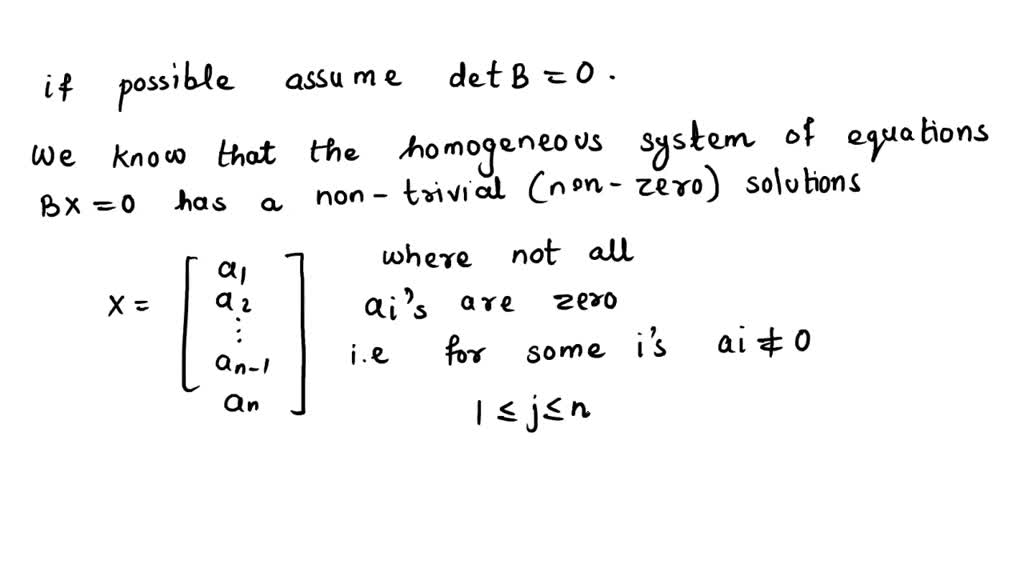 if possible assume det B = 0.
We know that the homogeneous system of equations
BX = 0 has a non-trivial (non-zero) solutions
X = [ a1 a2 ⋮ an-1 an ] where not all
ai's are zero
i.e for some i's ai ≠ 0
1 ≤ j ≤ n